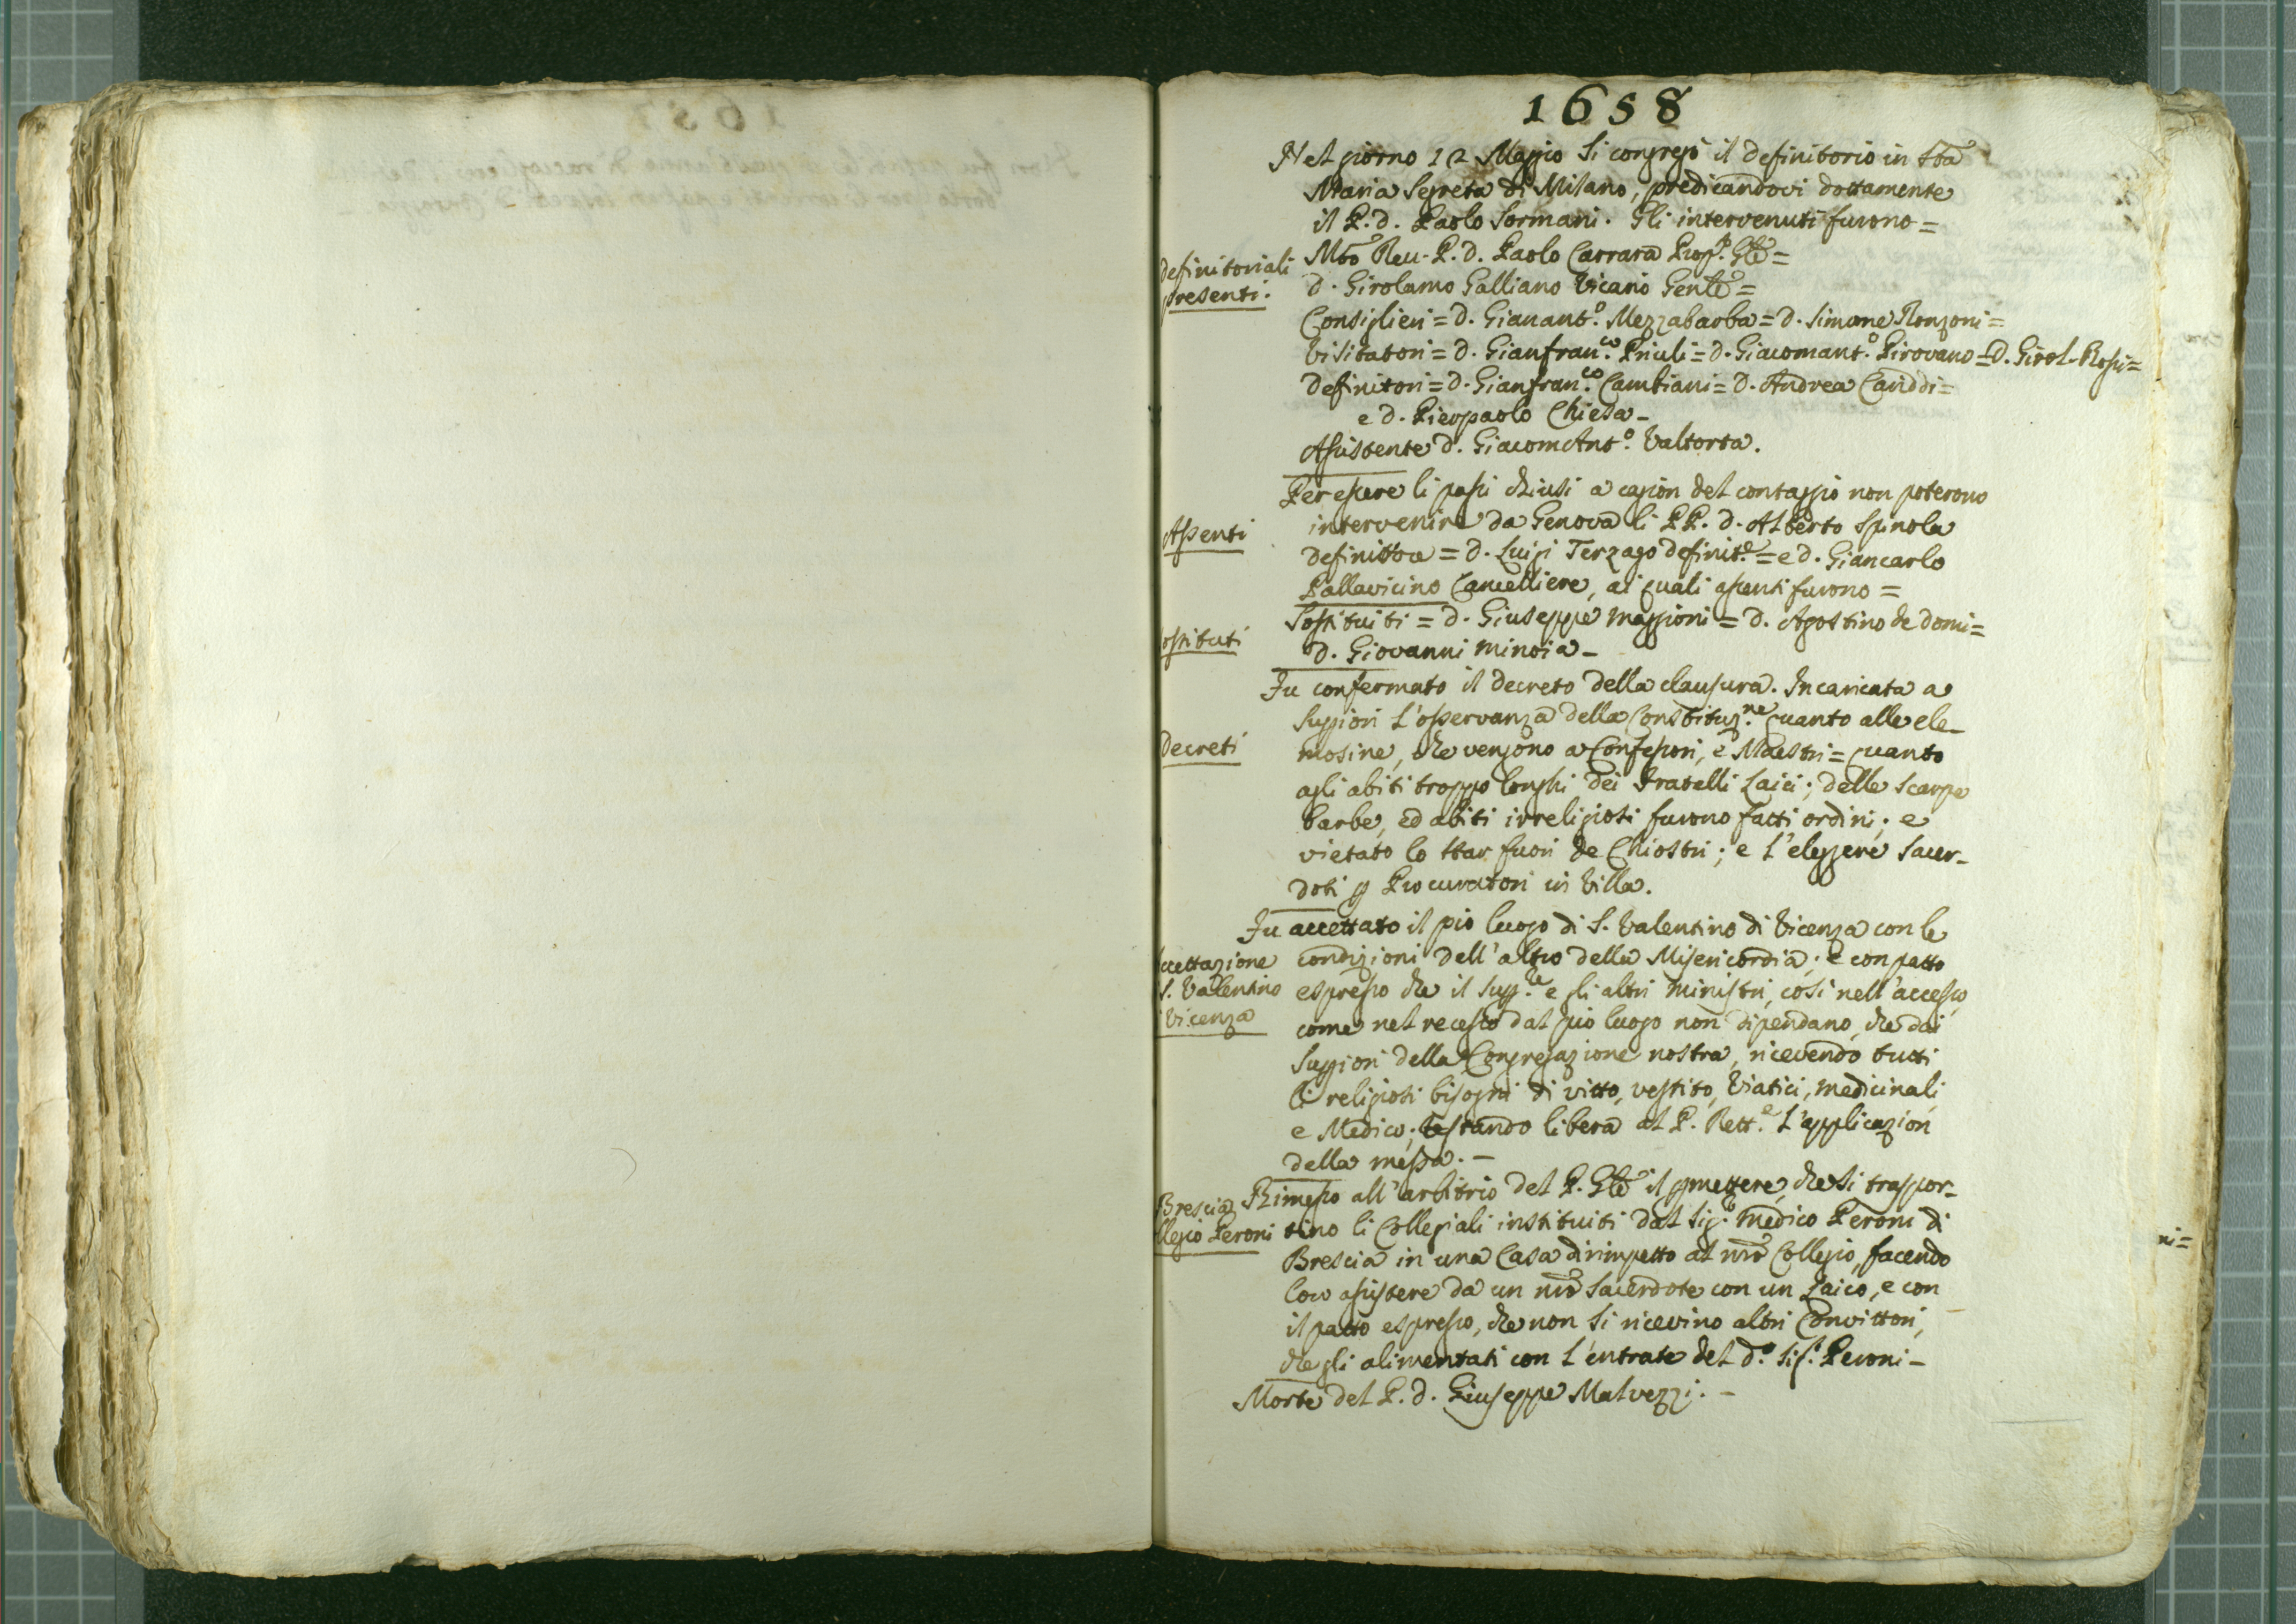 1658
Nel giorno 12 Maggio si congregò il definitorio in Sta
Maria Segreta di Milano, predicandovi dottamente
il P. d. Paolo Sormani. Gli intervenuti furono =
definitoriali
presenti.
Mto Reu. P. d. Paolo Carrara Prop. Gle =
d. Girolamo Galliano Vicario Genle =
Consiglieri = d. Gianant.o Mezzabarba = d. Simone Ronzoni =
Visitatori = d. Gianfran.co Priuli = d. Giacomant.o Pirovano = D. Girol. Rossi =
Definitori = d. Gianfran.co Cambiani = D. Andrea Cariddi =
e d. Pierpaolo Chiesa -
Assistente d. GiacomAnt.o Valtorta.
Assenti
Per essere li passi chiusi a cagion del contaggio non poterono
intervenire da Genova li PP. d. Alberto Spinola
definittore = d. Luigi Terzago definit.e = e d. Giancarlo
Pallavicino Cancelliere, ai quali assenti furono =
ostituti
Sostituiti = d. Giuseppe Maggioni = D. Agostino de Domi =
D. Giovanni Minoia -
Decreti
Fu confermato il decreto della clausura. Incaricata a
Suppiori l'osservanza della Constituz.ne quanto alle ele-
mosine, che vengono a Confessori, e Maestri = quanto
agli abiti troppo longhi dei Fratelli Laici; delle scarpe
barbe, ed abiti irreligiosi furono fatti ordini; e
vietato lo star fuori de Chiostri; e l'eleggere Sacer-
doti p Procuratori in Villa.
ccettazione
S. Valentino
Vicenza
Fu accettato il pio luogo di S. Valentino di Vicenza con le
condizioni dell'altro della Misericordia; e con patto
espresso che il Supp.re e gli altri Ministri, così nell'accesso,
come nel recesso dal pio luogo non dipendano, che dai
Suppiori della Congregazione nostra, ricevendo tutti
li religiosi bisogni di vitto, vestito, Viatici, medicinali,
e Medico; restando libera al P. Rett.e l'applicazion
della messa. -
Brescia
llegio Peroni
Rimesso all'arbitrio del P. Gle il pmettere, che si traspor-
tino li Collegiali instituiti dal Sig. Medico Peroni di
Brescia in una Casa dirimpetto al nro Collegio, facendo
loro assistere da un nro Sacerdote con un Laico, e con
il patto espresso, che non si ricevino altri Convittori,
che gli alimentati con l'entrate del d.o Sig. Peroni -
Morte del P. d. Giuseppe Malvezzi. -
ni =